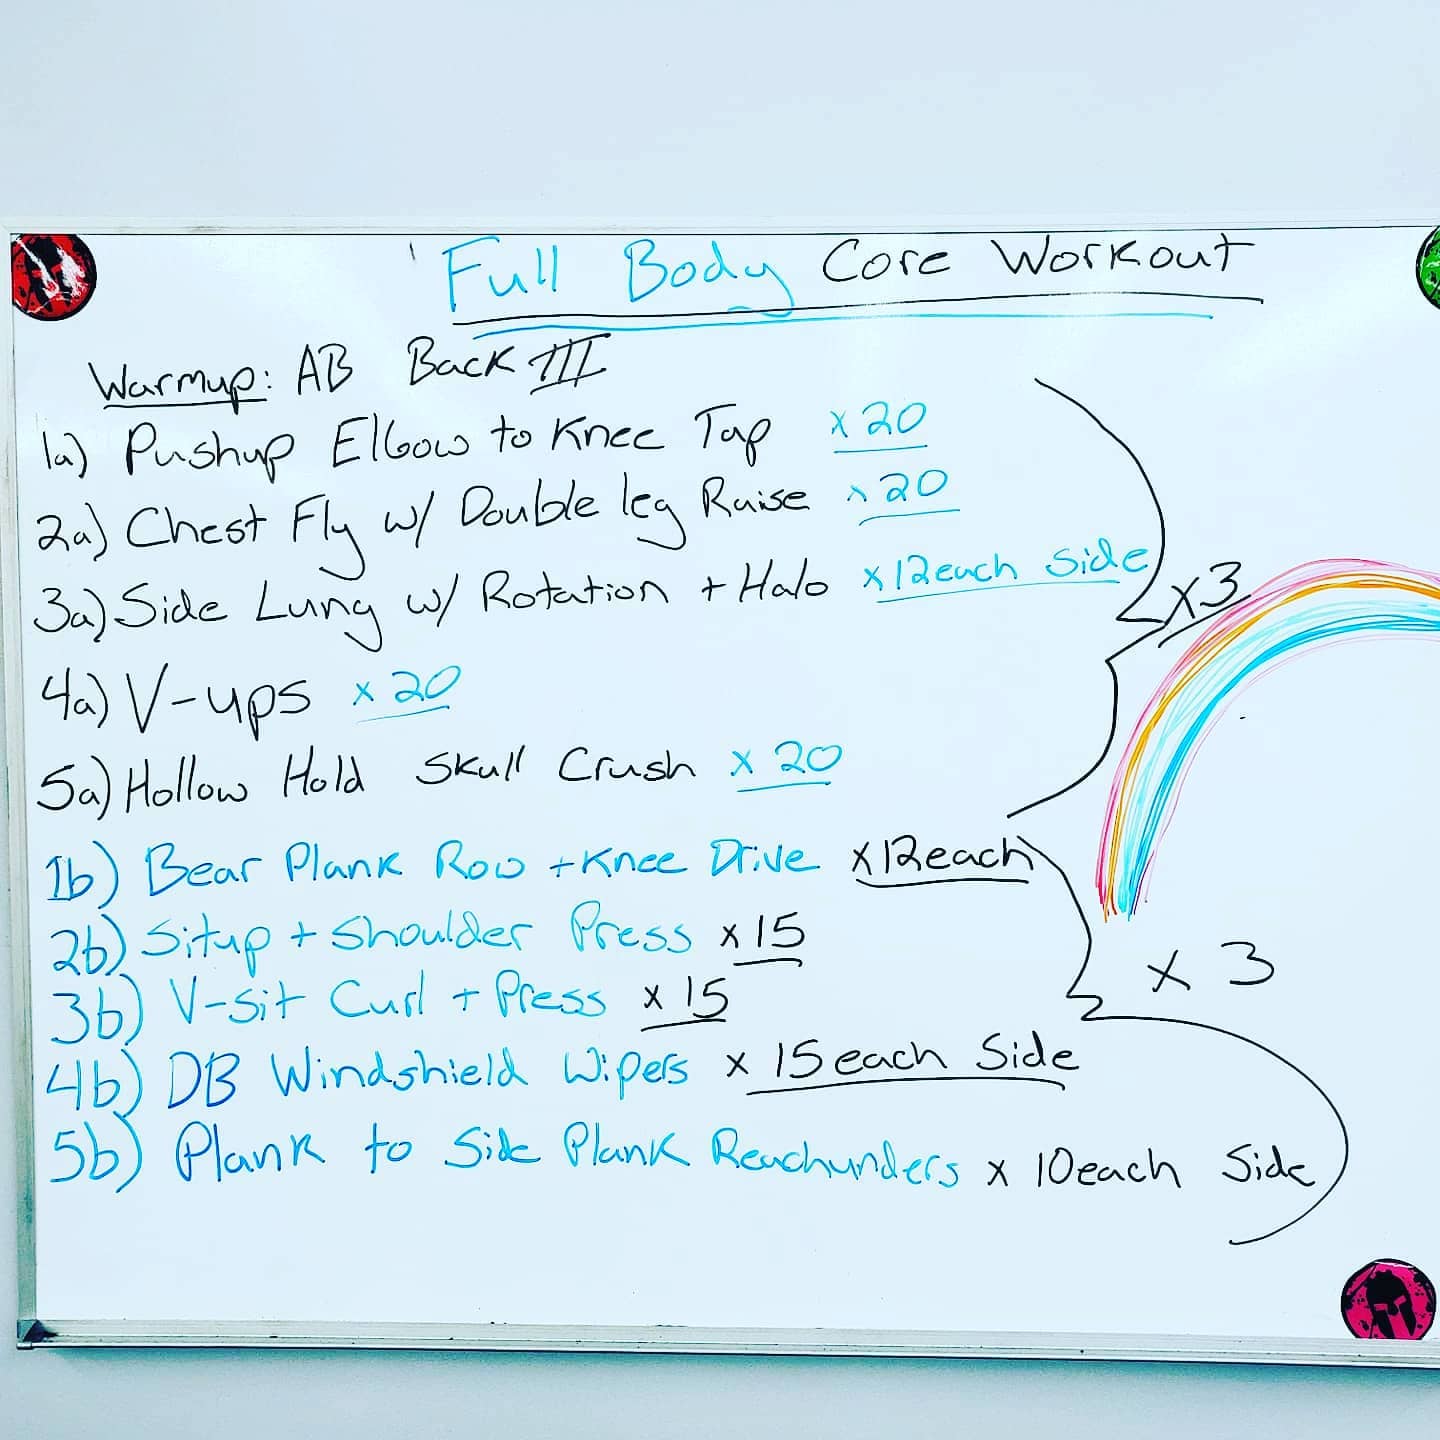 Full Body Core Workout
Warmup: AB Back III
1a) Pushup Elbow to Knee Tap x 20
2a) Chest Fly w/ Double leg Raise x 20
3a) Side Lung w/ Rotation + Halo x 12 each Side
x3
4a) V-ups x 20
5a) Hollow Hold Skull Crush x 20
1b) Bear Plank Row + Knee Drive x 12 each
2b) Situp + Shoulder Press x 15
x 3
3b) V-sit Curl + Press x 15
4b) DB Windshield Wipers x 15 each Side
5b) Plank to Side Plank Reachunders x 10 each Side